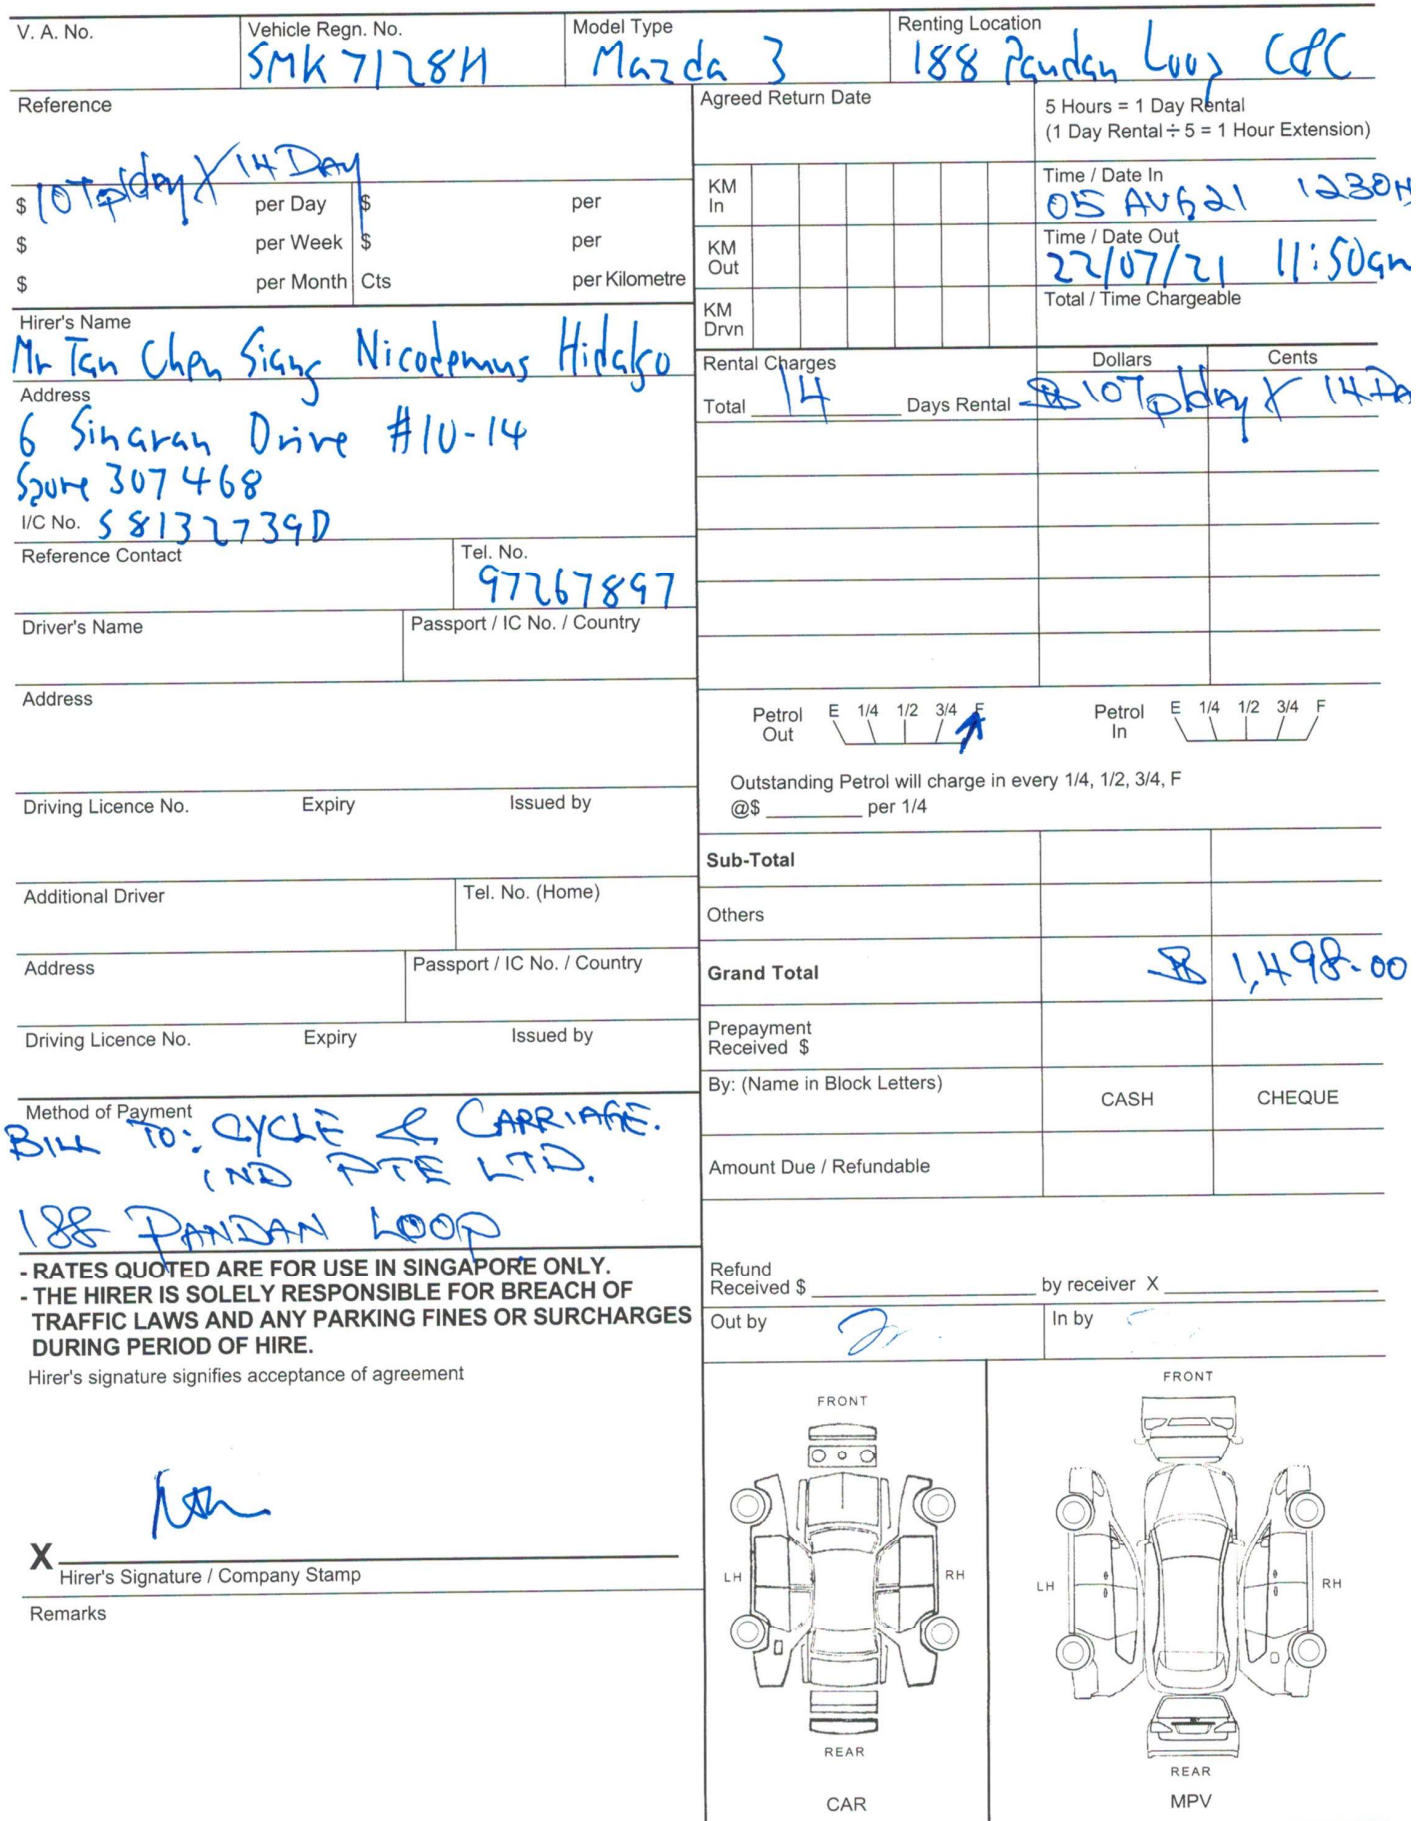 V. A. No.
Vehicle Regn. No.
SMK 7128H
Model Type
Mazda 3
Renting Location
188 Pandan Loop C&C
Reference
107 p/day X 14 DAY
$ per Day $ per
$ per Week $ per
$ per Month Cts per Kilometre
Agreed Return Date
5 Hours = 1 Day Rental
(1 Day Rental ÷ 5 = 1 Hour Extension)
KM In
KM Out
KM Drvn
Time / Date In
05 AUG 21 1230H
Time / Date Out
22/07/21 11:50am
Total / Time Chargeable
Hirer's Name
Mr Tan Chen Siang Nicodemus Hidalgo
Address
6 Sinaran Drive #10-14
Spore 307468
I/C No. S8132739D
Reference Contact
Tel. No.
97267897
Driver's Name
Passport / IC No. / Country
Address
Driving Licence No. Expiry Issued by
Additional Driver
Tel. No. (Home)
Address
Passport / IC No. / Country
Driving Licence No. Expiry Issued by
Method of Payment
BILL TO: CYCLE & CARRIAGE.
IND PTE LTD.
188 PANDAN LOOP
- RATES QUOTED ARE FOR USE IN SINGAPORE ONLY.
- THE HIRER IS SOLELY RESPONSIBLE FOR BREACH OF
TRAFFIC LAWS AND ANY PARKING FINES OR SURCHARGES
DURING PERIOD OF HIRE.
Hirer's signature signifies acceptance of agreement
X
Hirer's Signature / Company Stamp
Remarks
Rental Charges
Dollars Cents
Total 14 Days Rental $107 p/day X 14 DA
Petrol Out E 1/4 1/2 3/4 F
Petrol In E 1/4 1/2 3/4 F
Outstanding Petrol will charge in every 1/4, 1/2, 3/4, F
@$ per 1/4
Sub-Total
Others
Grand Total $ 1,498.00
Prepayment
Received $
By: (Name in Block Letters)
CASH CHEQUE
Amount Due / Refundable
Refund
Received $ by receiver X
Out by
In by
FRONT
LH RH
REAR
CAR
FRONT
LH RH
REAR
MPV